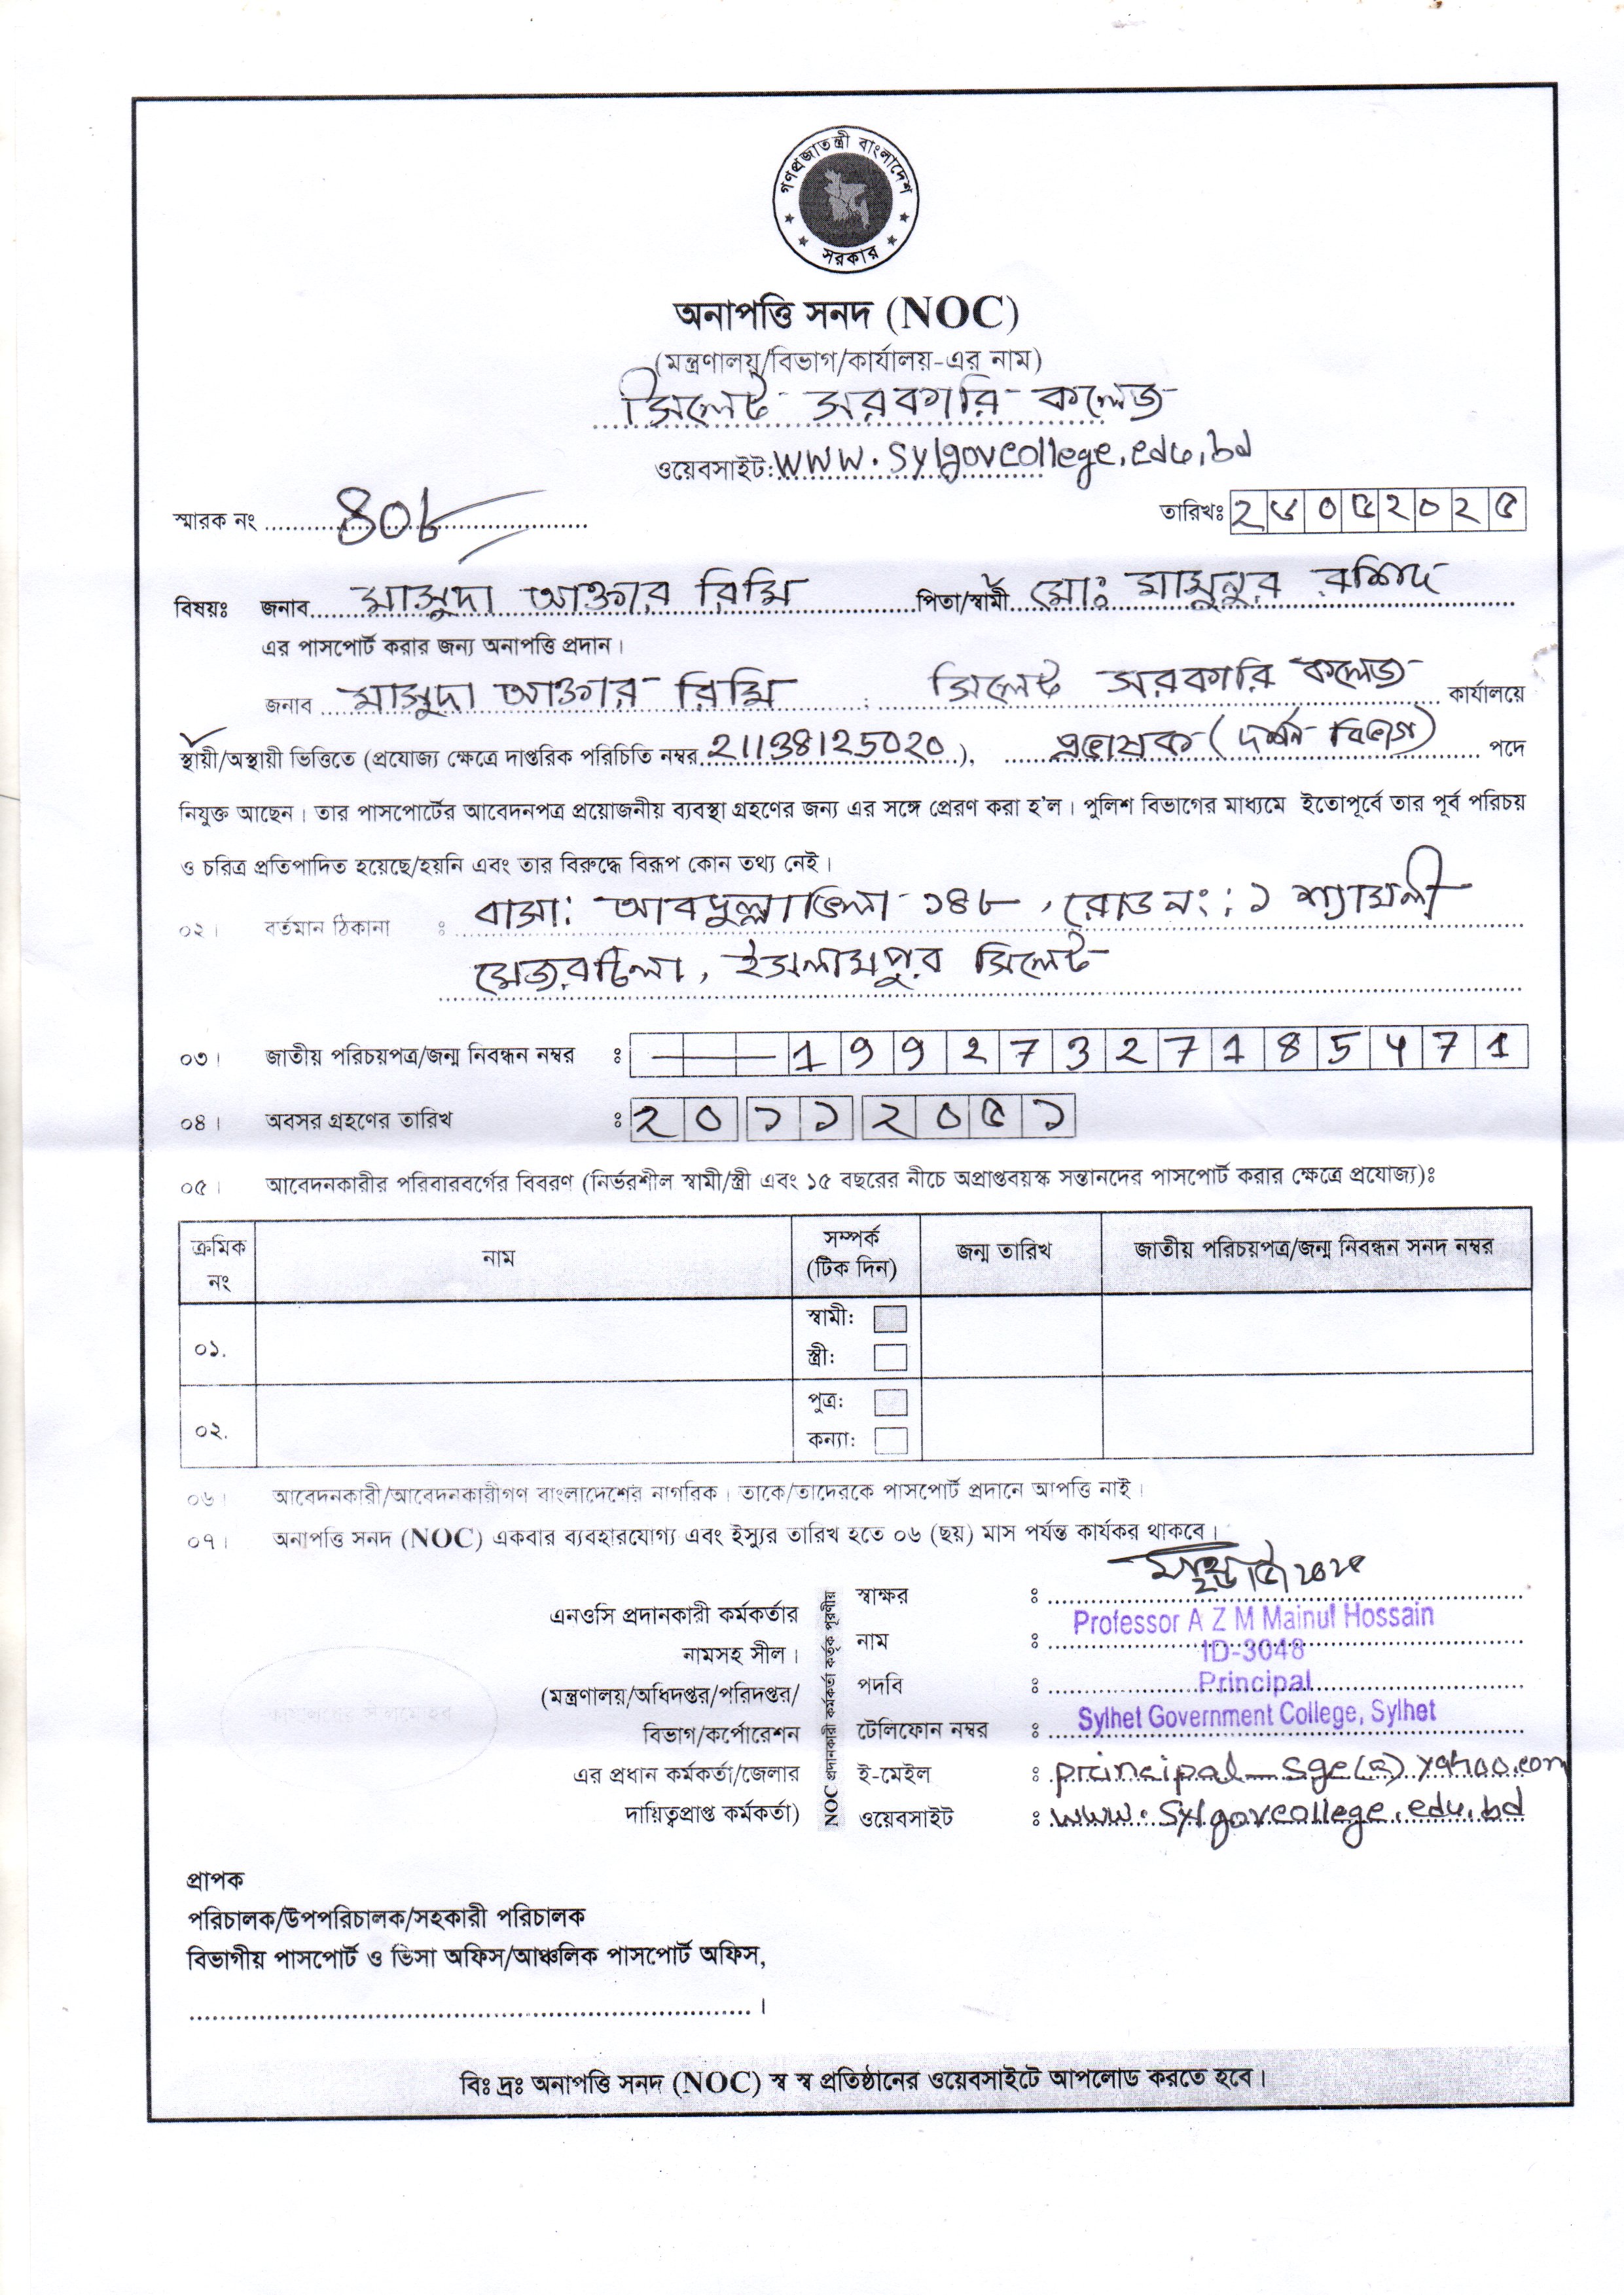 গণপ্রজাতন্ত্রী বাংলাদেশ
সরকার
অনাপত্তি সনদ (NOC)
(মন্ত্রণালয়/বিভাগ/কার্যালয়-এর নাম)
সিলেট সরকারি কলেজ
ওয়েবসাইট: www.sylgovcollege.edu.bd
স্মারক নং ৪০৮ তারিখঃ ২৬০৫২০২৫
বিষয়ঃ জনাব মাসুদা আক্তার রিমি পিতা/স্বামী মোঃ মামুনুর রশিদ
এর পাসপোর্ট করার জন্য অনাপত্তি প্রদান।
জনাব মাসুদা আক্তার রিমি ; সিলেট সরকারি কলেজ কার্যালয়ে
স্থায়ী/অস্থায়ী ভিত্তিতে (প্রযোজ্য ক্ষেত্রে দাপ্তরিক পরিচিতি নম্বর 21138125020), প্রভাষক (দর্শন বিভাগ) পদে
নিযুক্ত আছেন। তার পাসপোর্টের আবেদনপত্র প্রয়োজনীয় ব্যবস্থা গ্রহণের জন্য এর সঙ্গে প্রেরণ করা হ'ল। পুলিশ বিভাগের মাধ্যমে ইতোপূর্বে তার পূর্ব পরিচয়
ও চরিত্র প্রতিপাদিত হয়েছে/হয়নি এবং তার বিরুদ্ধে বিরূপ কোন তথ্য নেই।
০২। বর্তমান ঠিকানা : বাসা: আবদুল্লা ভিলা ১৪৮, রোড নং: ১ শ্যামলী
মেজরটিলা, ইসলামপুর সিলেট
০৩। জাতীয় পরিচয়পত্র/জন্ম নিবন্ধন নম্বর ঃ 19927327185471
০৪। অবসর গ্রহণের তারিখ ঃ ২০১১২০৫১
০৫। আবেদনকারীর পরিবারবর্গের বিবরণ (নির্ভরশীল স্বামী/স্ত্রী এবং ১৫ বছরের নীচে অপ্রাপ্তবয়স্ক সন্তানদের পাসপোর্ট করার ক্ষেত্রে প্রযোজ্য)ঃ
ক্রমিক নং নাম সম্পর্ক (টিক দিন) জন্ম তারিখ জাতীয় পরিচয়পত্র/জন্ম নিবন্ধন সনদ নম্বর
০১. স্বামী:
স্ত্রী:
০২. পুত্র:
কন্যা:
০৬। আবেদনকারী/আবেদনকারীগণ বাংলাদেশের নাগরিক। তাকে/তাদেরকে পাসপোর্ট প্রদানে আপত্তি নাই।
০৭। অনাপত্তি সনদ (NOC) একবার ব্যবহারযোগ্য এবং ইস্যুর তারিখ হতে ০৬ (ছয়) মাস পর্যন্ত কার্যকর থাকবে।
এনওসি প্রদানকারী কর্মকর্তার
নামসহ সীল।
(মন্ত্রণালয়/অধিদপ্তর/পরিদপ্তর/
বিভাগ/কর্পোরেশন
এর প্রধান কর্মকর্তা/জেলার
দায়িত্বপ্রাপ্ত কর্মকর্তা)
NOC প্রদানকারী কর্মকর্তা কর্তৃক পূরণীয়
স্বাক্ষর ঃ ২৬/৫/২০২৫
নাম ঃ Professor A Z M Mainul Hossain
ID-3048
পদবি ঃ Principal
টেলিফোন নম্বর ঃ Sylhet Government College, Sylhet
ই-মেইল ঃ principal_sgc@yahoo.com
ওয়েবসাইট ঃ www.sylgovcollege.edu.bd
প্রাপক
পরিচালক/উপপরিচালক/সহকারী পরিচালক
বিভাগীয় পাসপোর্ট ও ভিসা অফিস/আঞ্চলিক পাসপোর্ট অফিস,
।
বিঃ দ্রঃ অনাপত্তি সনদ (NOC) স্ব স্ব প্রতিষ্ঠানের ওয়েবসাইটে আপলোড করতে হবে।